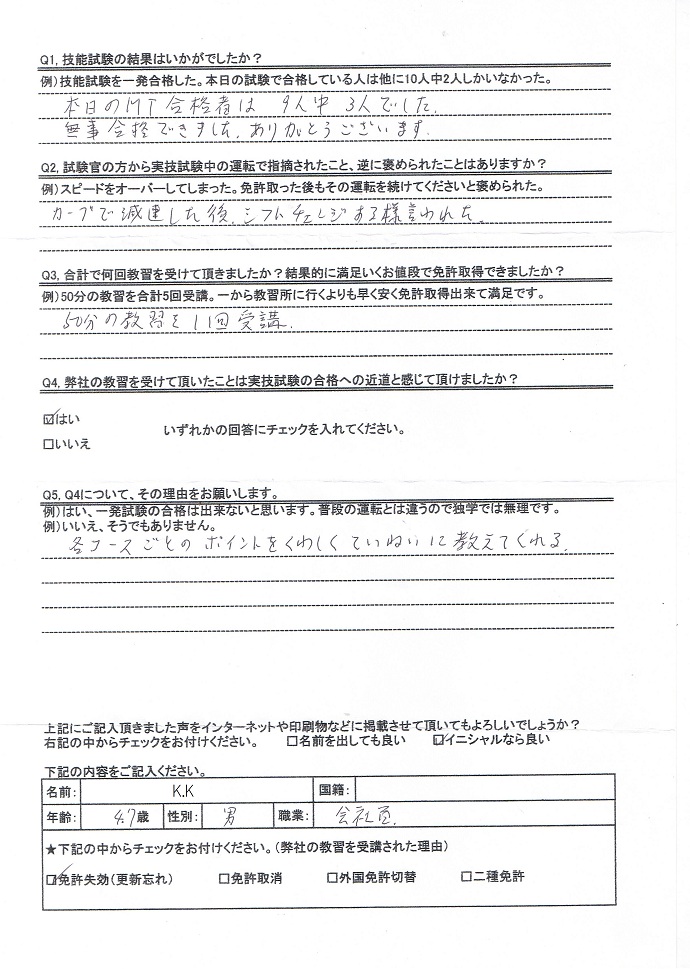 Q1, 技能試験の結果はいかがでしたか？
例）技能試験を一発合格した。本日の試験で合格している人は他に10人中2人しかいなかった。
本日のMT合格者は 9人中 3人でした。
無事合格できました。ありがとうございます。
Q2, 試験官の方から実技試験中の運転で指摘されたこと、逆に褒められたことはありますか？
例）スピードをオーバーしてしまった。免許取った後もその運転を続けてくださいと褒められた。
カーブで減速した後、シフトチェンジする様言われた。
Q3, 合計で何回教習を受けて頂きましたか？結果的に満足いくお値段で免許取得できましたか？
例）50分の教習を合計5回受講。一から教習所に行くよりも早く安く免許取得出来て満足です。
50分の教習を11回受講。
Q4, 弊社の教習を受けて頂いたことは実技試験の合格への近道と感じて頂けましたか？
☑はい
いずれかの回答にチェックを入れてください。
□いいえ
Q5, Q4について、その理由をお願いします。
例）はい、一発試験の合格は出来ないと思います。普段の運転とは違うので独学では無理です。
例）いいえ、そうでもありません。
各コースごとのポイントをくわしくていねいに教えてくれる。
上記にご記入頂きました声をインターネットや印刷物などに掲載させて頂いてもよろしいでしょうか？
右記の中からチェックをお付けください。 □名前を出しても良い ☑イニシャルなら良い
下記の内容をご記入ください。
名前： K.K 国籍：
年齢： 47歳 性別： 男 職業： 会社員
★下記の中からチェックをお付けください。（弊社の教習を受講された理由）
☑免許失効（更新忘れ） □免許取消 □外国免許切替 □二種免許